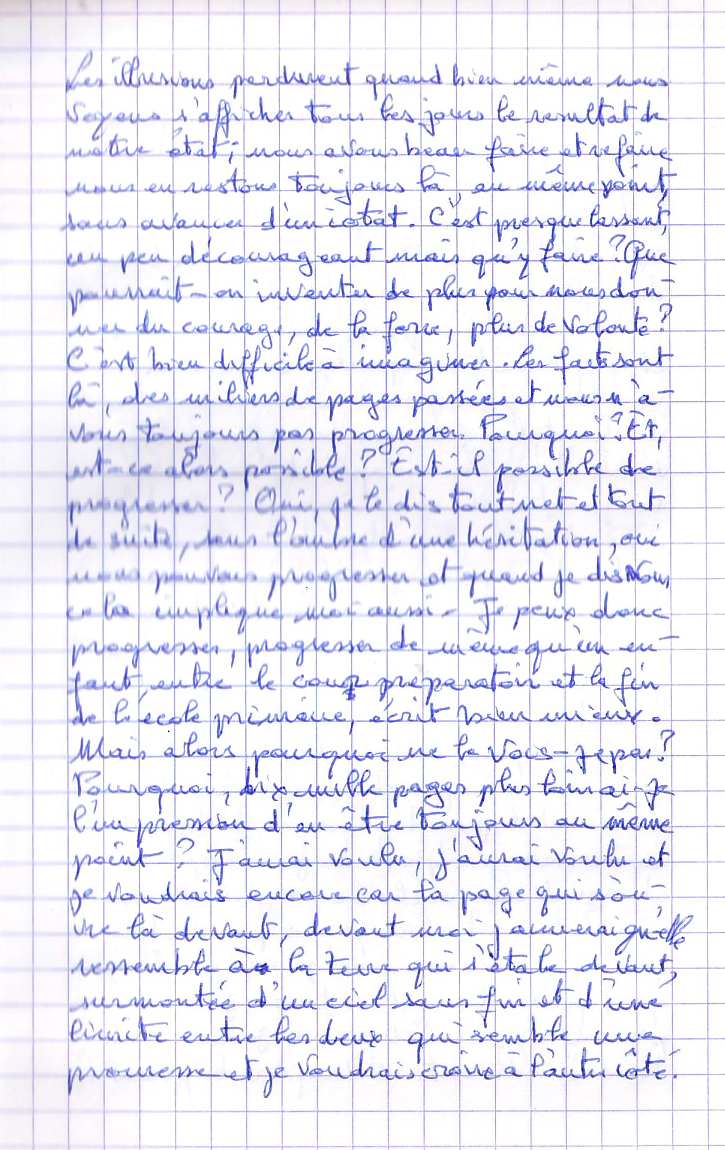 Les illusions perdurent quand bien même nous
voyons s'afficher tous les jours le resultat de
notre état; nous avons beau faire et refaire
nous en restons toujours là, au même point,
sans avancer d'un iotat. C'est presque lassant,
un peu décourageant mais qu'y faire? Que
pourrait-on inventer de plus pour nous don-
ner du courage, de la force, plus de volonté?
C'est bien difficile à imaginer. Les faits sont
là, des milliers de pages passées et nous n'a-
vons toujours pas progresser. Pourquoi? Et,
est-ce alors possible? Est-il possible de
progresser? Oui, je le dis tout net et tout
de suite, sans l'ombre d'une hésitation, oui
nous pouvons progresser et quand je dis Nous,
cela implique moi aussi. Je peux donc
progresser, progresser de même qu'un en-
fant, entre le cours préparatoir et la fin
de l'école primaire, écrit bien mieux.
Mais alors pourquoi ne le vois-je pas?
Pourquoi, dix mille pages plus loin ai-je
l'impression d'en être toujours au même
point? J'aurai voulu, j'aurai voulu et
je voudrais encore car la page qui s'ou-
vre là devant, devant moi j'aimerai qu'elle
ressemble à la terre qui s'étale devant,
surmontée d'un ciel sans fin et d'une
limite entre les deux qui semble une
promesse et je voudrais croire à l'autre côté.